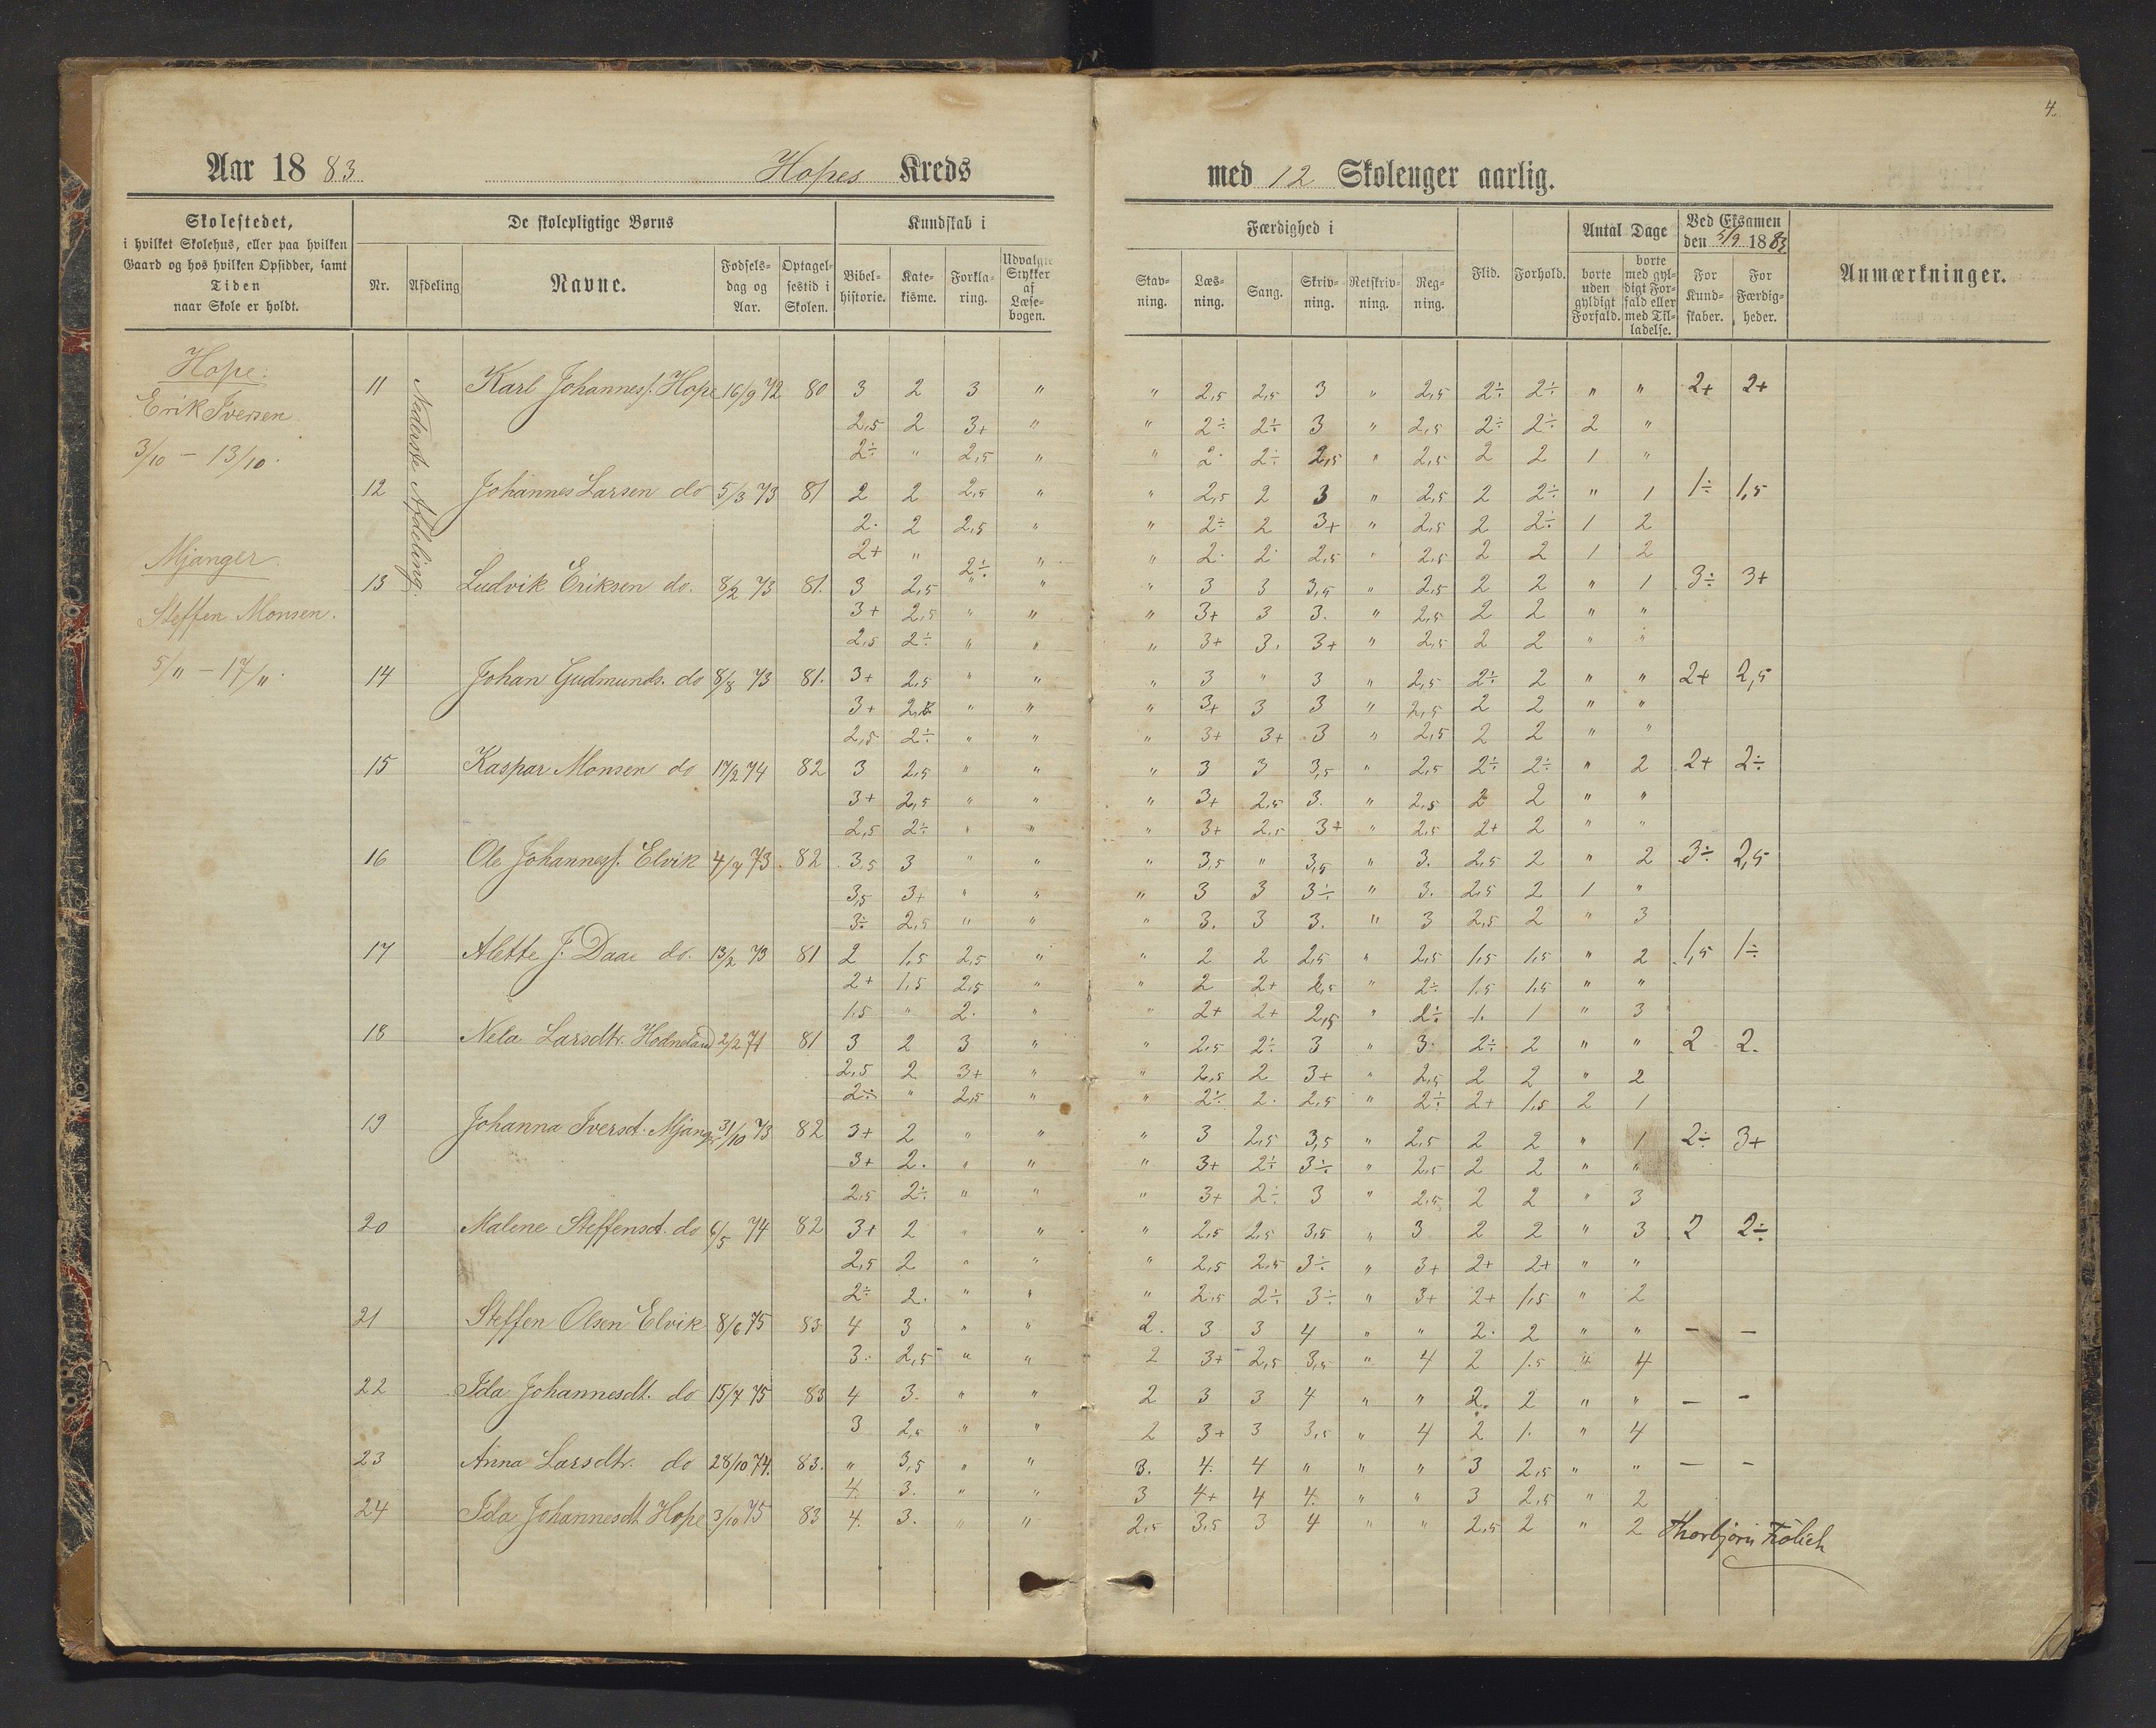 4.
Aar 1883 Hopes Kreds med 12 Skoleuger aarlig.
Skolestedet, i hvilket Skolehus, eller paa hvilken Gaard og hos hvilken Opsidder, samt Tiden naar Skole er holdt.
De skolepligtige Børns
Nr. Afdeling Navne. Fødselsdag og Aar. Optagelsestid i Skolen.
Kundskab i
Bibelhistorie. Katekisme. Forklaring. Udvalgte Stykker af Læsebogen.
Færdighed i
Stavning. Læsning. Sang. Skrivning. Retskrivning. Regning.
Flid. Forhold.
Antal Dage
borte uden gyldigt Forfald. borte med gyldigt Forfald eller med Tilladelse.
Ved Eksamen den 5/9 1883
For Kundskaber. For Færdigheder.
Anmærkninger.
Hope:
Erik Iversen
3/10 – 13/10.
Mjanger.
Steffen Monsen.
5/11 – 17/11.
Nederste Afdeling.
11 Karl Johannesf. Hope 16/9 72 80 3 2 3 " " 2,5 2,5 3 " 2,5 2÷ 2÷ " " 2+ 2+
2,5 2 3+ " " 2÷ 2÷ 3 " 2,5 2÷ 2÷ 2 "
2÷ " 2,5 " " 2. 2÷ 2,5 " 2,5 2 2 1 "
12 Johannes Larsen do 5/3 73 81 2 2 2,5 " " 2,5 2 3 " 2,5 2 2÷ " 1 1÷ 1,5
2. 2 2,5 " " 2÷ 2 3+ " 2,5 2 2÷ 1 2
2+ " 2÷ " " 2. 2. 2,5 " 2,5 2 2 1 2
13 Ludvik Eriksen do. 8/2 73 81. 3 2,5 " " " 3 3 3,5 " 2,5 2 2 " 1 3÷ 3+
3+ 2,5 " " " 3+ 3 3. " 2,5 2 2 " "
2,5 2÷ " " " 3+ 3. 3+ " 2,5 2 2 " "
14 Johan Gudmunds. do 8/8 73 81. 3+ 2,5 " " " 3 " 3 " 2,5 2÷ 2 " " 2+ 2,5
3+ 2,5 " " " 3+ 3 3 " 2,5 2 2 " "
2,5 2÷ " " " 3+ 3+ 3 " 2,5 2 2 " "
15 Kaspar Monsen do 17/2 74 82 3 2,5 " " " 3 3 3,5 " 2,5 2÷ 2÷ " 2 2+ 2÷
3+ 2,5 " " " 3+ 2,5 3. " 2,5 2 2 " "
2,5 2÷ " " " 3+ 2,5 3+ " 2,5 2+ 2 " "
16 Ole Johannesf. Elvik 4/7 73. 82 3,5 3 " " " 3,5 " 3,5 " 3. 2,5 2 " 2 3÷ 2,5
3,5 3+ " " " 3 3 3÷ " 3. 2,5 2 1 "
3÷ 2,5 " " " 3. 3 3. " 3 2,5 2 " 3
17 Alette J. Daae do. 13/2 73 81 2 1,5 2,5 " " 2 2 2,5 " 2,5 1,5 1,5 " 2 1,5 1÷
2+ 1,5 2,5 " " 2 2+ 2,5 " 2÷ 1,5 1,5 " "
1,5 " 2. " " 2+ 2+ 2,5 " 2÷ 1. 1 " 3
18 Nela Larsdtr. Hodneland 2/2 71 81 3 2 3 " " 2,5 2÷ 3 " 3. 2÷ 2 " " 2 2.
2,5 2 3+ " " 2,5 2 3+ " 2,5 2 2 " 2
2÷ " 2,5 " " 2÷ 2. 2,5 " 2÷ 2+ 1,5 2 1
19 Johanna Iversd. Mjanger 31/10 73 82 3+ 2 " " " 3 2,5 3,5 " 2,5 2 2 " 1 2÷ 3+
3+ 2. " " " 3+ 2÷ 3÷ " 2,5 2 2 " "
2,5 2÷ " " " 3+ 2÷ 3 " 2,5 2 2 " 3
20 Malene Steffensd. do 6/5 74 82 3+ 2 " " " 2,5 2,5 3,5 " 3 2 2 " 3 2 2÷
2,5 2 " " " 2,5 2,5 3÷ " 3+ 2+ 2+ " "
2÷ 2. " " " 2,5 2÷ 3÷ " 3+ 2+ 1,5 " 2
21 Steffen Olsen Elvik 8/6 75 83 4 3 " " 2. 3 3 4 " " 2. 2 " " – –
3. 2,5 " " 2 3+ 2,5 3,5 " 4 2 1,5 " 4
22 Ida Johannesdt. do 15/7 75 83 4 3. " " 2 3 3 4 " " 2. 2 " " – –
3 2,5 " " 2 3+ 3 3,5 " 4 2 1. " 4
23 Anna Larsdtr. do 28/10 74. 83. " 3,5 " " 3. 4. 4 " " " 3 2,5 " " – –
4. 3. " " 3 4+ 4 4. " " 3 2,5 " 2
24 Ida Johannesdt Hope 3/10 75 83 4. 3. " " 2,5 3,5 3 4 " " 2,5 2 " 2
Thorbjørn Frölich